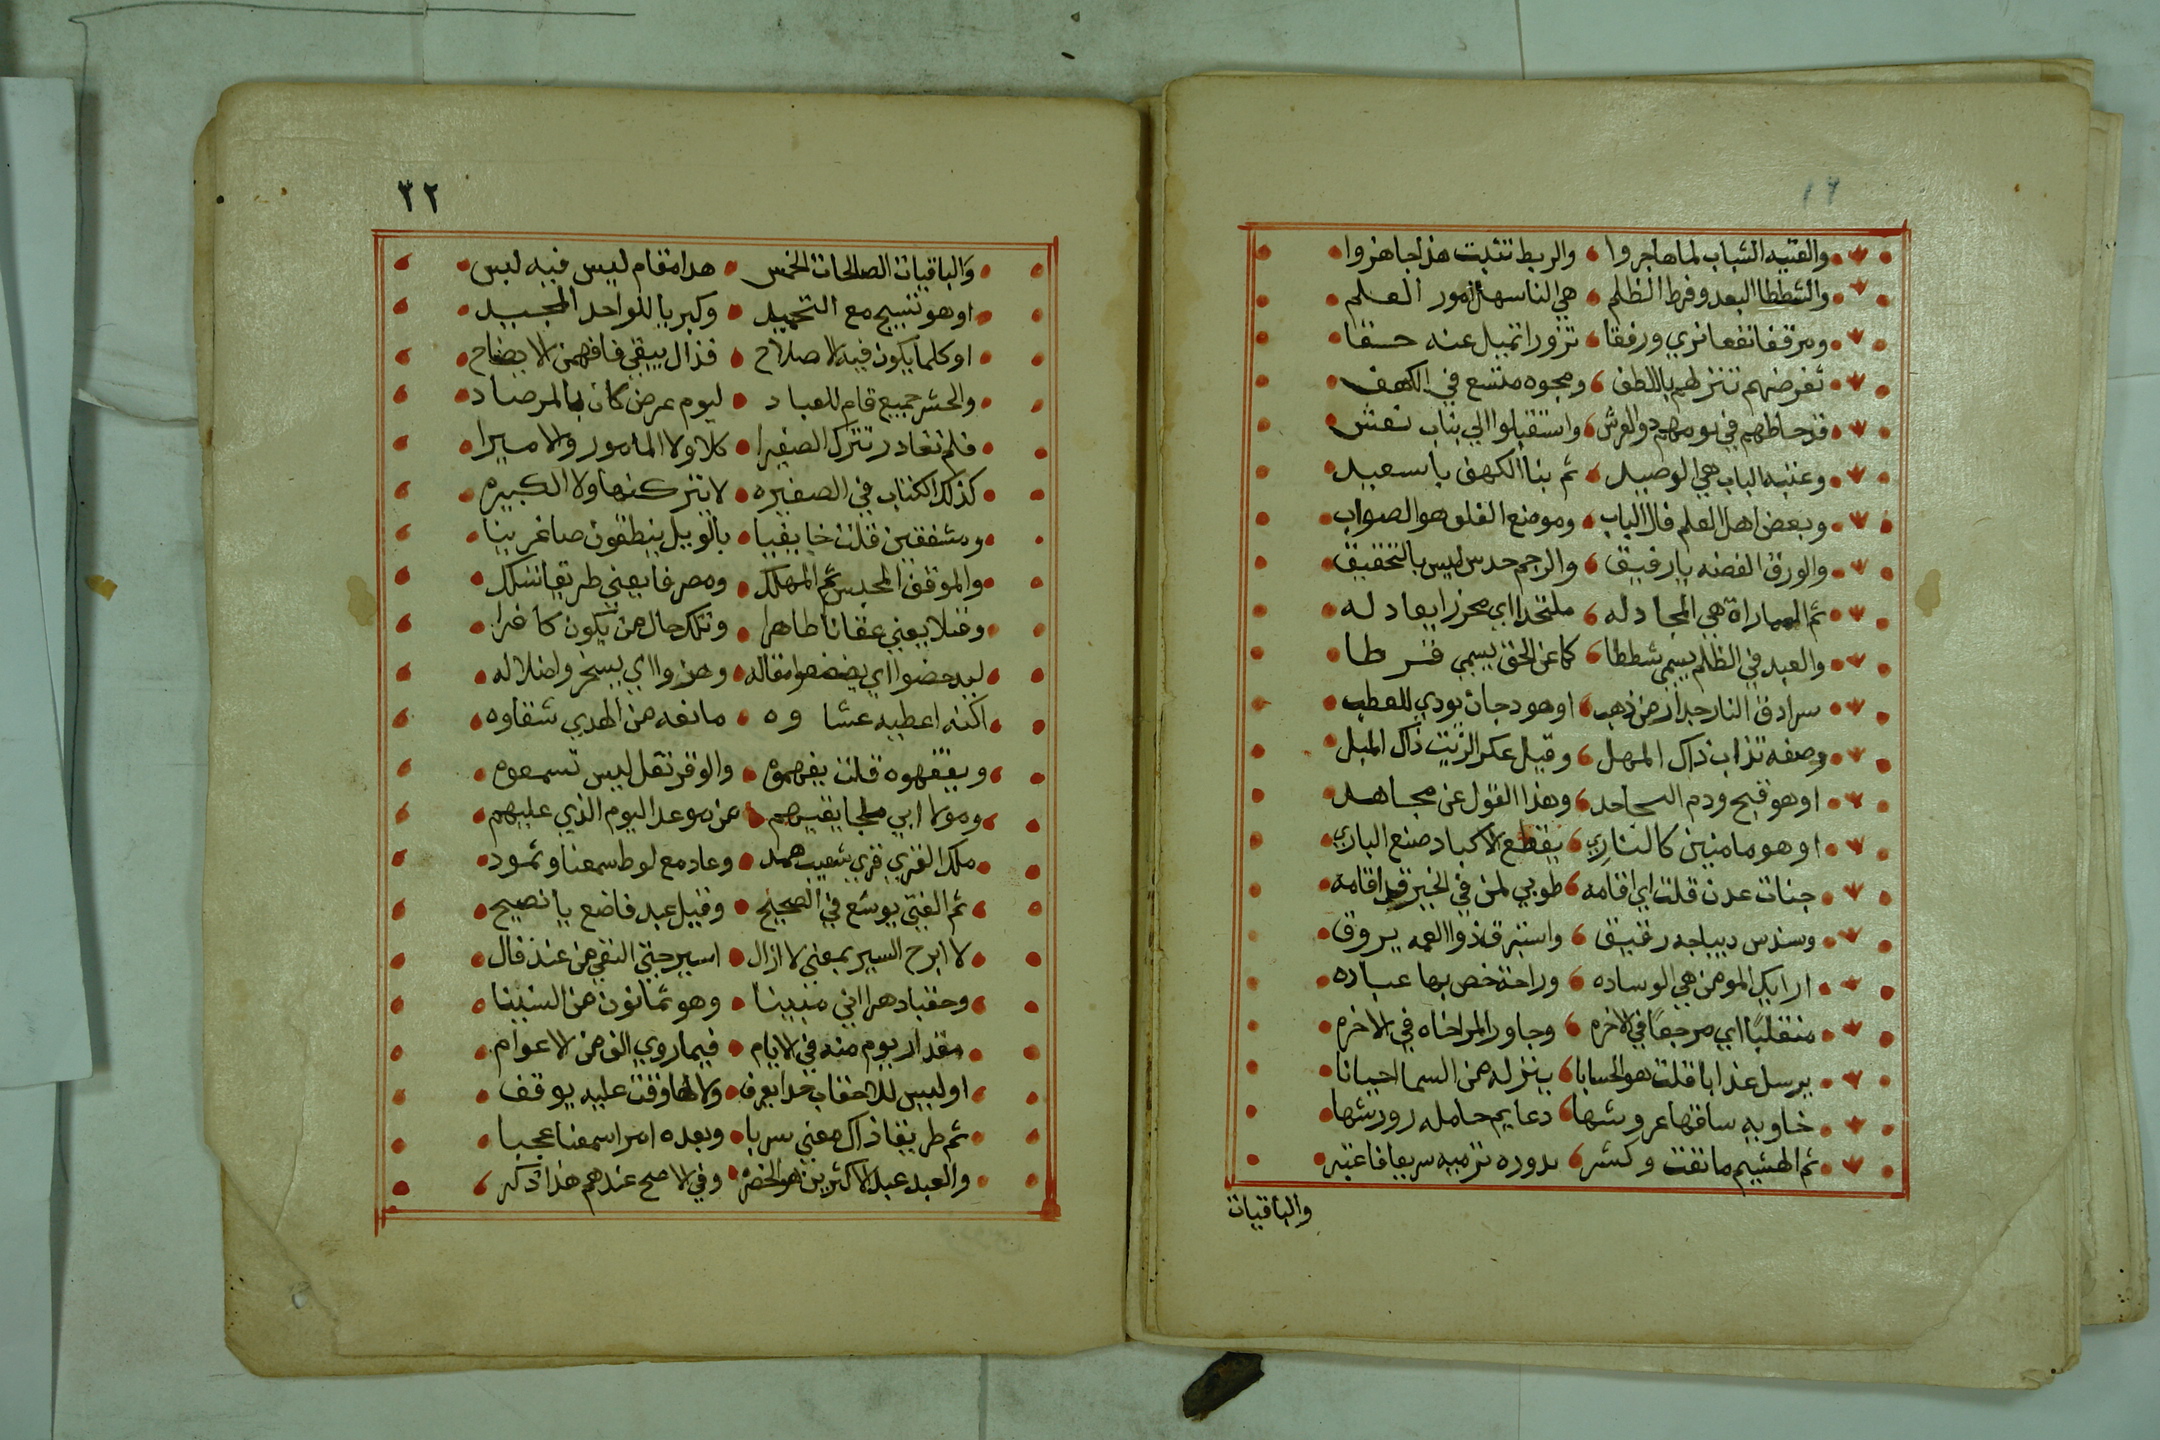 ١٦
والفتيه الشباب لما هاجروا والربط تثبت هذا جاهزوا
والشططا البعد وفرط الظلم هي الناسهل امور العلم
ومرفقا نفعا نري ورفقا تزورا تميل عنه حنقا
تقرضهم تتنزلهم باللطف وفجوه متسع في الكهف
قد حاطهم في نومهم ذو العرش واستقبلوا الي بناب نعش
وعتبه الباب هي الوصيد ثم بنا الكهف يا سعيد
وبعض اهل العلم قال الباب وموضع الغلق هو الصواب
والورق الفضه يا رفيق والرجم حدس ليس بالتحقيق
ثم المماراة هي المجادله ملتحدا اي محرزا يعادله
والعبد في الظلم يسمي شططا كما عن الحق يسمي فرطا
سرادق النار جدار من ذهب او هو دجان يودي للعطب
وصفه تذاب ذاك المهل وقيل عكر الزيت ذاك المبل
او هو قيح ودم الجاحد وهذا القول عن مجاهد
او هو ما منين كالناري يقطع الاكباد صنع الباري
جنات عدن قلت اي اقامه طوبي لمن في الخير قد اقامه
وسندس ديباجه رقيق واستبرق ذوالعمه يروق
ارايك المومن هي الوساده وراحة خص بها عباده
منقلبًا اي مرجعًا في الاخره وجاور المراخاه في الاخره
يرسل عذابا قلت هو الحسابا ينزله من السما احيانا
خاويه ساقها عروشها دعايم حامله رورشها
ثم الهشيم ما تفت وكسر تدوره ترميه سريعا فاعتبر
والباقيات
٣٢
والباقيات الصالحات الخمس هدا مقام ليس فيه لبس
او هو تسبيح مع التحميد وكبريا للواحد المجيد
او كلما يكون فيه لاصلاح فذال يبقي فافهمن الايضاح
والحشر جميع قام للعباد ليوم عرض كان بالمرصاد
فلم نغادر تترك الصغيرا كلا ولا المامور ولا ميرا
كذلك الكتاب في الصغيره لا تتركنها ولا الكبيره
ومشفقين قلت خايفينا بالويل ينطقون صاغرينا
والموقف المحبس ثم المهلك ومصرفا يعني طريقا تسلك
وقبلا يعني عيانا طاهرا وتلك حال من يكون كافرا
ليدحضوا اي يضعضعوا مقاله وهزوا اي يسخر واضلاله
اكنه اعطيه عشاوه مانعه من الهدي شقاوه
ويفقهوه قلت يفهموه والوقر ثقل ليس تسمعوه
ومويلا ابي ملجا يقيهم من موعد اليوم الذي عليهم
ملك القري قري شعيب همد وعاد مع لوط سمعنا وثمود
ثم الفتي يوشع في الصحيح وقيل عبد فاضع يا نصيح
لا ابرح السير بمعني لا ازال اسير حتي النقي من عند قال
وحقبا دهرا اني مبينا وهو ثمانون من السنينا
مقدار يوم منه في الايام فيما روي الف من الاعوام
او ليس للاحقاب حدا يعرف ولا لها وقت عليه يوقف
ثم طريقا ذاك معني سربا وبعده امرا سمعنا عجبا
والعبد عبد الاكثرين هو الخضر وفي الاصح عندهم هذا ذكر